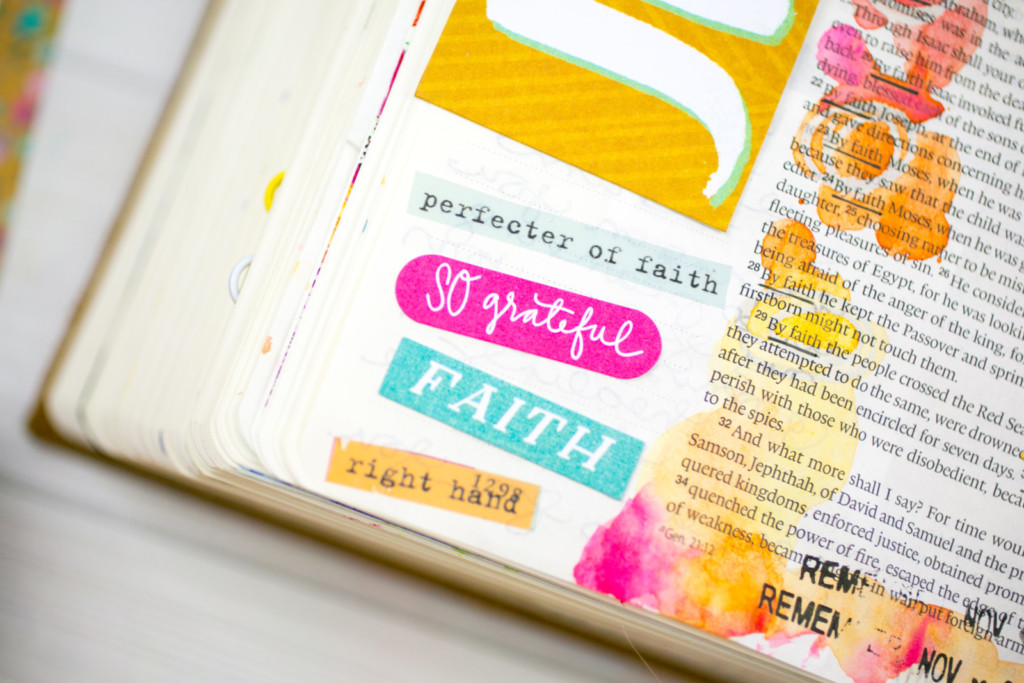 perfecter of faith
so grateful
FAITH
right hand
1298
Abraham, wh
promises was in the a
Through Isaac shall your
even to raise him from the dea
back. 20 By faith Isaac invoked fu
dying, blessed of the sons o
22 By faith Joseph, at the end of
and gave directions concerning h
23 By faith Moses, when he was
because they saw that the child wa
edict. 24 By faith Moses, when he was
daughter, 25 choosing rather to be mis
fleeting pleasures of sin. 26 He conside
the treasures of Egypt, for he was looki
being afraid of the anger of the king, fo
28 By faith he kept the Passover and sprin
firstborn might not touch them.
29 By faith the people crossed the Red Se
they attempted to do the same, were drowned
after they had been encircled for seven days
perish with those who were disobedient, beca
to the spies.
32 And what more shall I say? For time wou
Samson, Jephthah, of David and Samuel and the pr
quered kingdoms, enforced justice, obtained prom
34 quenched the power of fire, escaped the edge of
of weakness, became in war, put foreign arm
Gen. 21:12
REM
NOV
REMEM
NOV